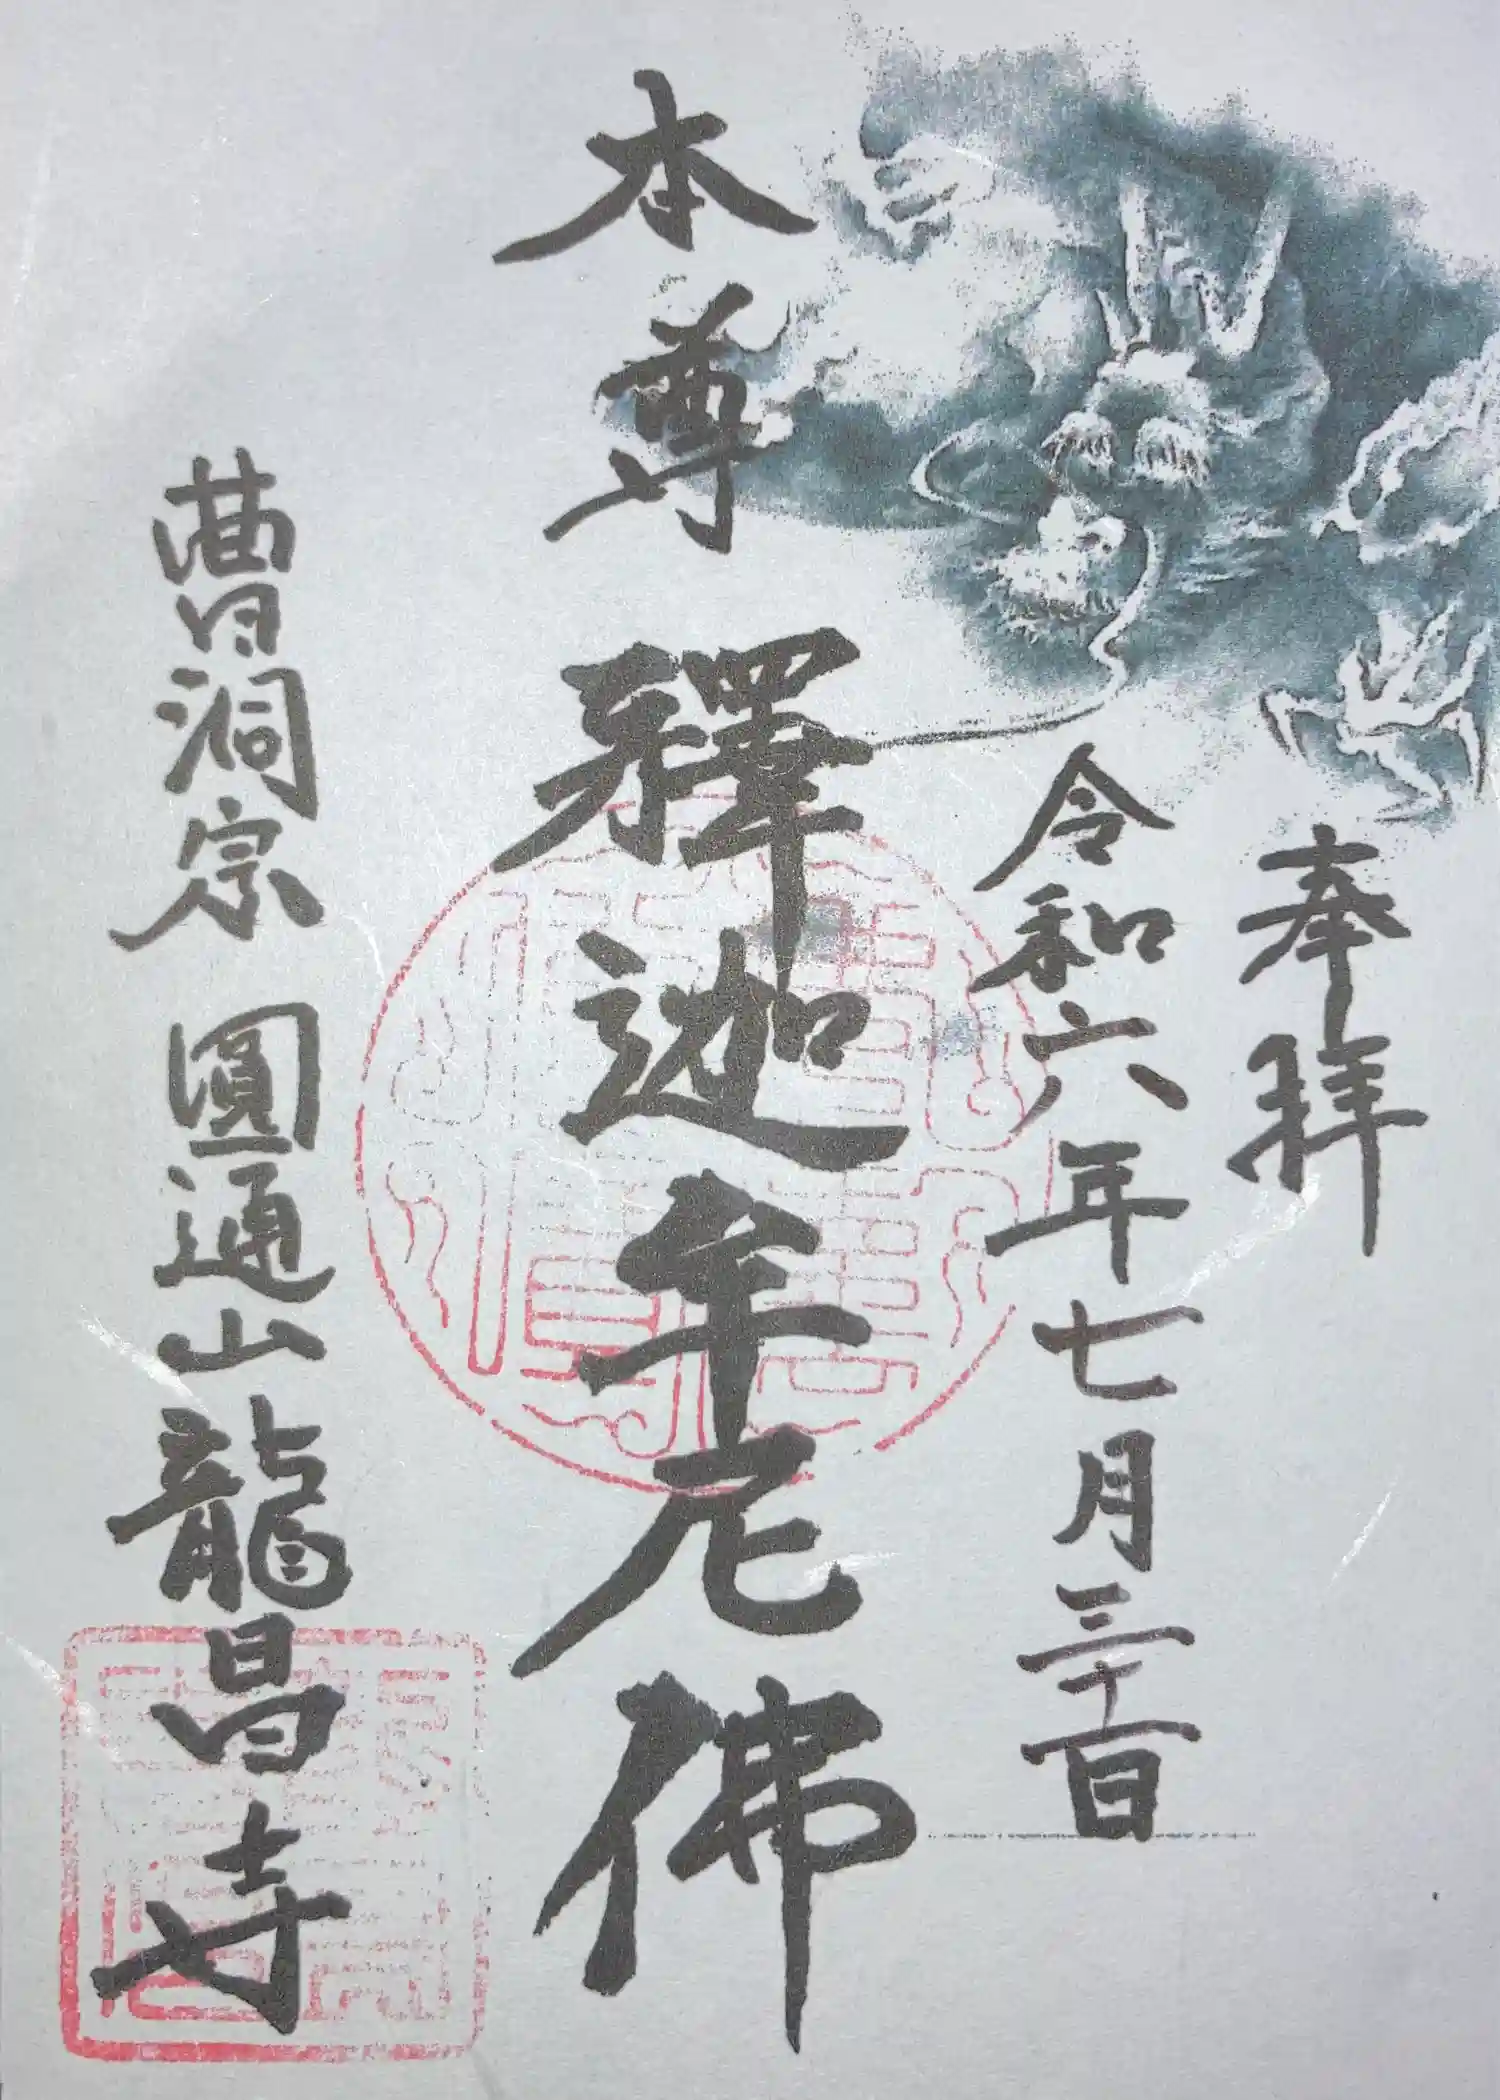 奉拝
令和六年七月三十一日
本尊 釋迦牟尼佛
曹洞宗 圓通山龍昌寺